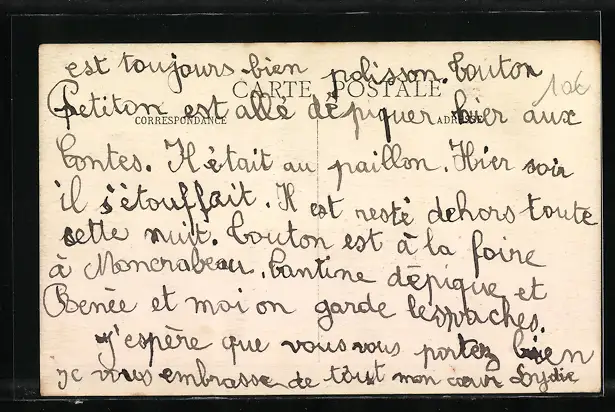 est toujours bien polisson. Touton
CARTE POSTALE
10€
Petiton est allé dépiquer hier aux
CORRESPONDANCE
ADRESSE
Contes. Il était au paillon. Hier soir
il s'étouffait. Il est resté dehors toute
cette nuit. Touton est à la foire
à Moncrabeau. Cantine dépique et
Renée et moi on garde les vaches.
j'espère que vous vous portez bien
je vous embrasse de tout mon cœur Lydie